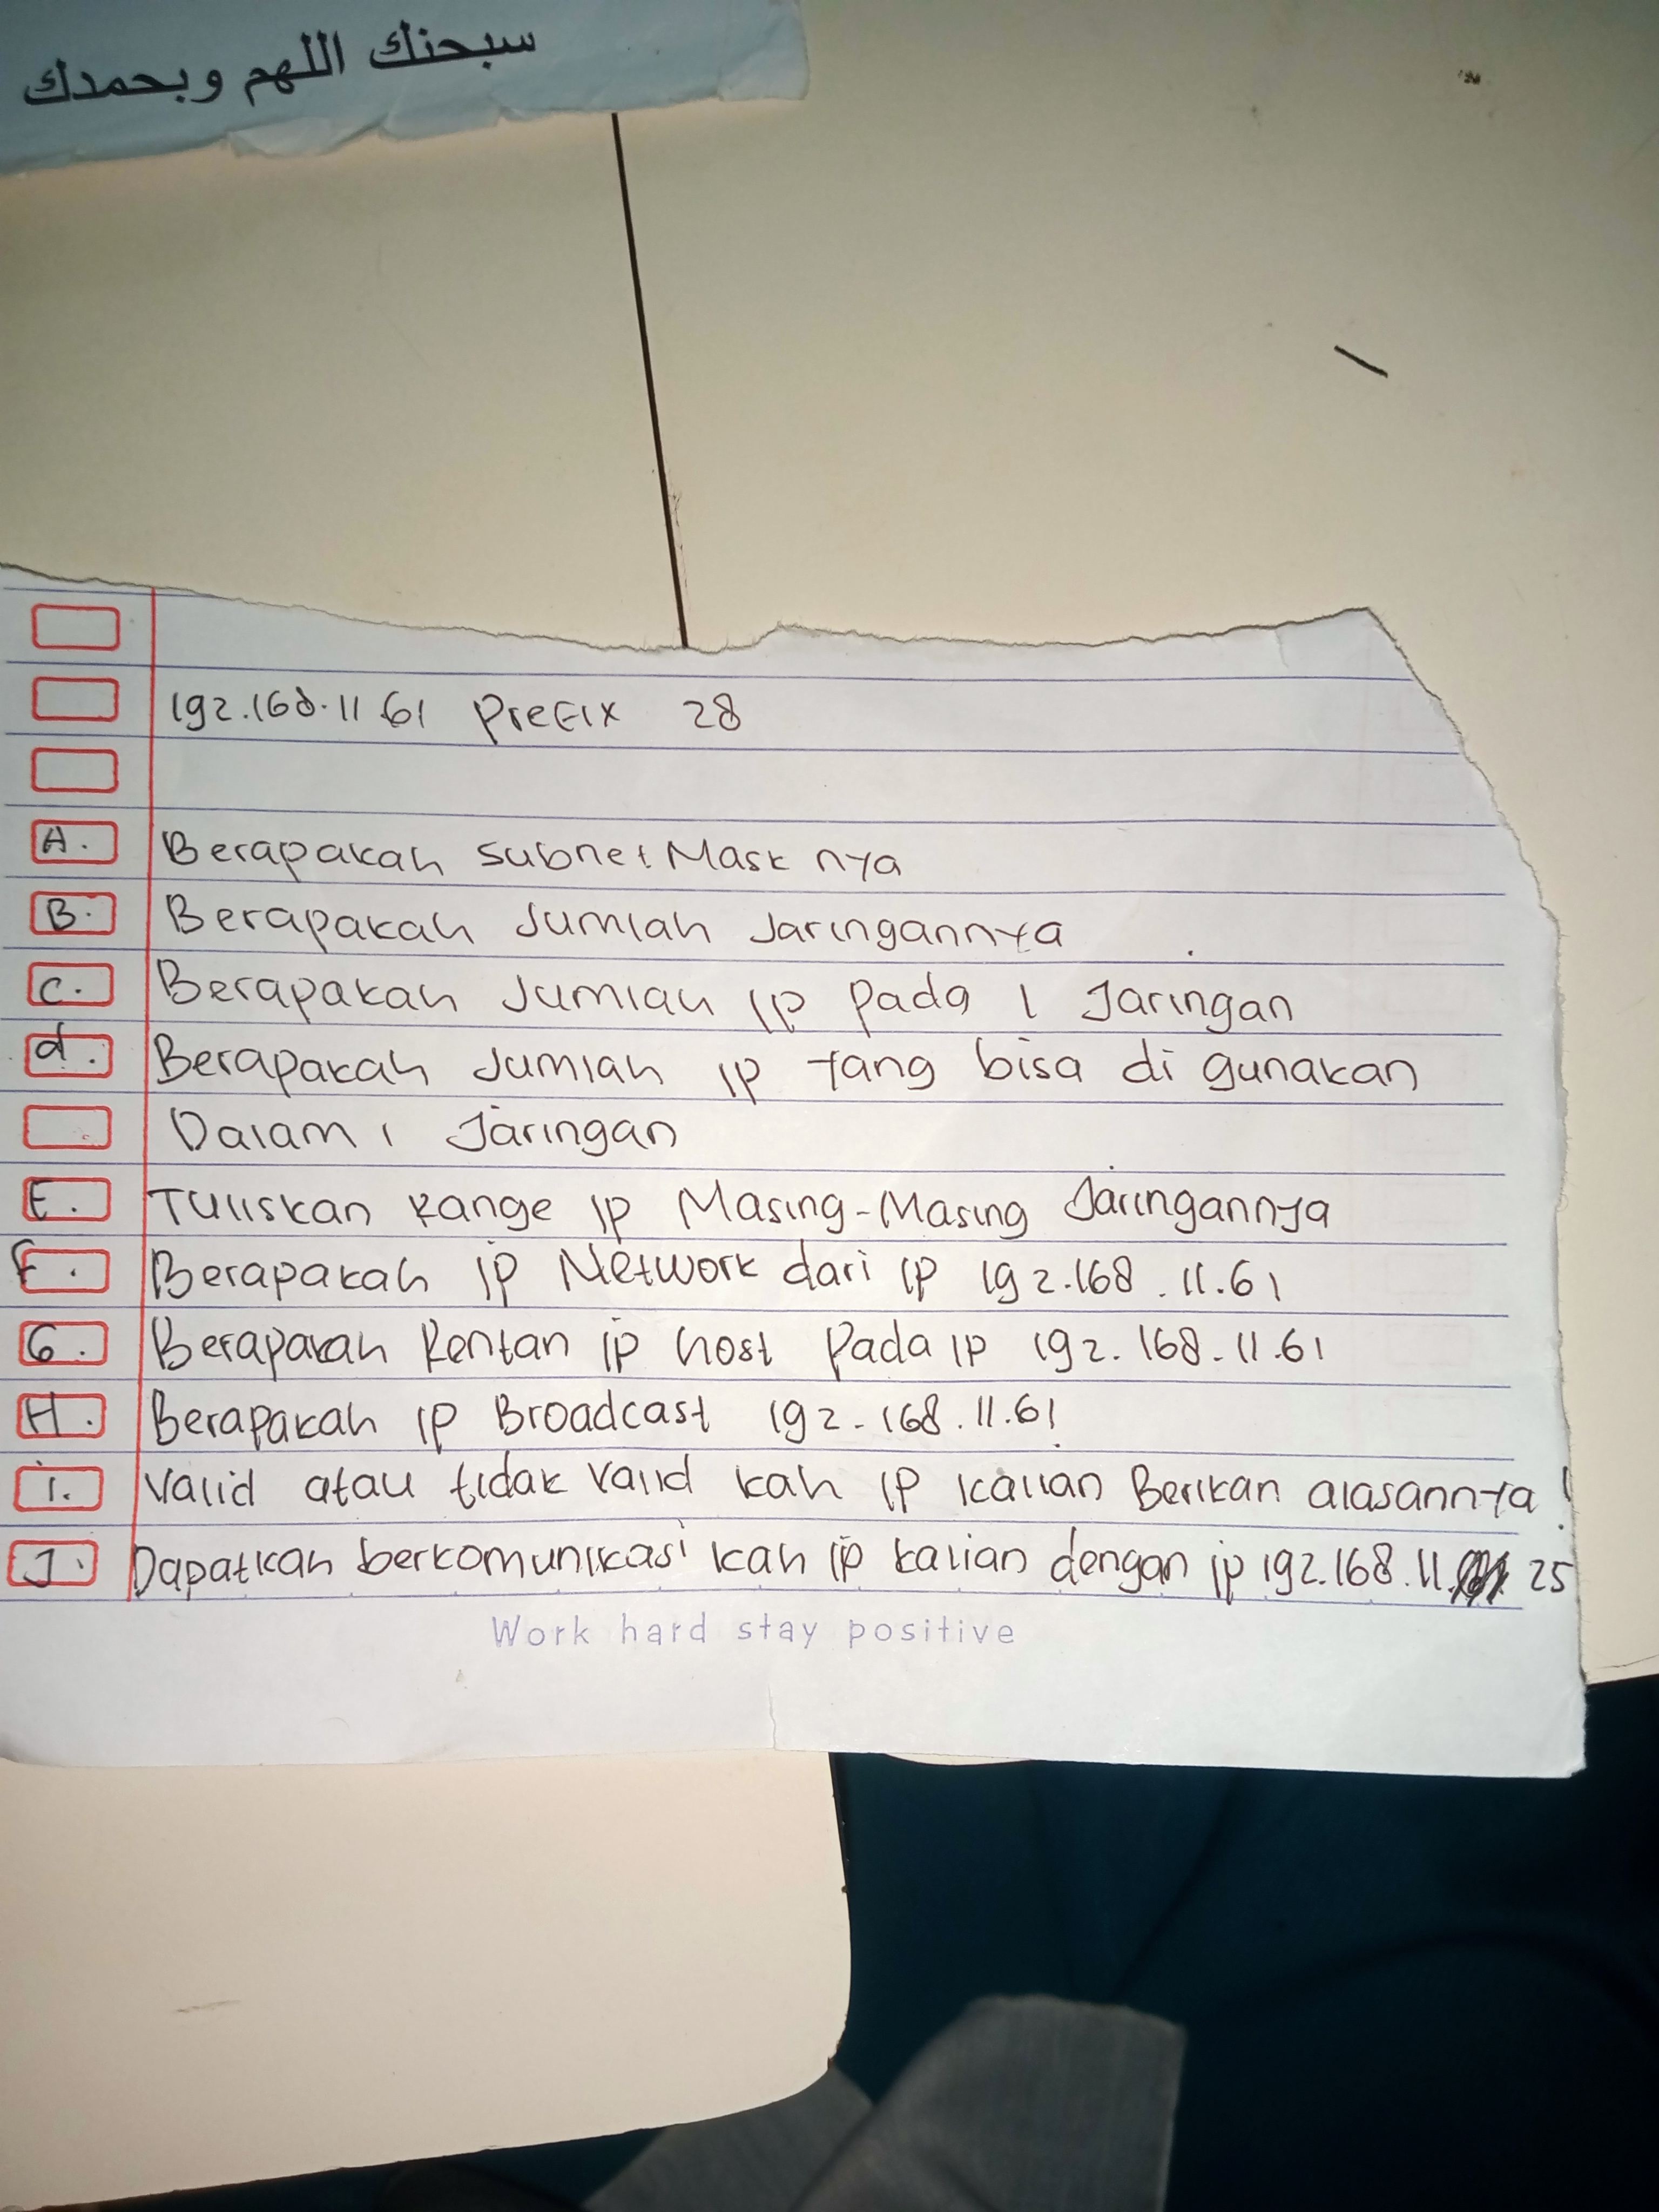 سبحنك اللهم وبحمدك
192.168.11.61 Prefix 28
A. Berapakah subnet Mask nya
B. Berapakah Jumlah Jaringannya
C. Berapakah Jumlah IP Pada 1 Jaringan
d. Berapakah Jumlah IP Yang bisa di gunakan
Dalam 1 Jaringan
E. Tuliskan Range IP Masing-Masing Jaringannya
F. Berapakah IP Network dari IP 192.168.11.61
G. Berapakah Rentan IP host Pada IP 192.168.11.61
H. Berapakah IP Broadcast 192.168.11.61
i. Valid atau tidak Valid kah IP kalian Berikan alasannya!
J. Dapatkah berkomunikasi kah IP kalian dengan ip 192.168.11. 25
Work hard stay positive